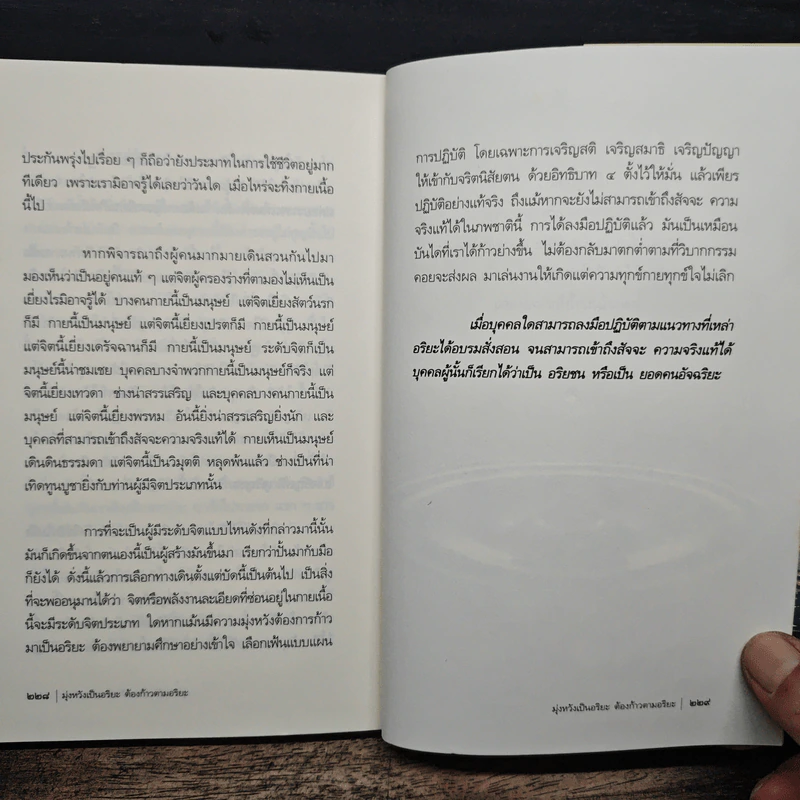 ประกันพรุ่งไปเรื่อย ๆ ก็ถือว่ายังประมาทในการใช้ชีวิตอยู่มาก
ทีเดียว เพราะเรามิอาจรู้ได้เลยว่าวันใด เมื่อไหร่จะทิ้งกายเนื้อ
นี้ไป
หากพิจารณาถึงผู้คนมากมายเดินสวนกันไปมา
มองเห็นว่าเป็นอยู่คนแท้ ๆ แต่จิตผู้ครองร่างที่ตามองไม่เห็นเป็น
เยี่ยงไรมิอาจรู้ได้ บางคนกายนี้เป็นมนุษย์ แต่จิตเยี่ยงสัตว์นรก
ก็มี กายนี้เป็นมนุษย์ แต่จิตนี้เยี่ยงเปรตก็มี กายนี้เป็นมนุษย์
แต่จิตนี้เยี่ยงเดรัจฉานก็มี กายนี้เป็นมนุษย์ ระดับจิตก็เป็น
มนุษย์นี้น่าชมเชย บุคคลบางจำพวกกายนี้เป็นมนุษย์ก็จริง แต่
จิตนี้เยี่ยงเทวดา ช่างน่าสรรเสริญ และบุคคลบางคนกายนี้เป็น
มนุษย์ แต่จิตนี้เยี่ยงพรหม อันนี้ยิ่งน่าสรรเสริญยิ่งนัก และ
บุคคลที่สามารถเข้าถึงสัจจะความจริงแท้ได้ กายเห็นเป็นมนุษย์
เดินดินธรรมดา แต่จิตนี้เป็นวิมุตติ หลุดพ้นแล้ว ช่างเป็นที่น่า
เทิดทูนบูชายิ่งกับท่านผู้มีจิตประเภทนั้น
การที่จะเป็นผู้มีระดับจิตแบบไหนดังที่กล่าวมานี้นั้น
มันก็เกิดขึ้นจากตนเองนี้เป็นผู้สร้างมันขึ้นมา เรียกว่าปั้นมากับมือ
ก็ยังได้ ดั่งนี้แล้วการเลือกทางเดินตั้งแต่บัดนี้เป็นต้นไป เป็นสิ่ง
ที่จะพออนุมานได้ว่า จิตหรือพลังงานละเอียดที่ซ่อนอยู่ในกายเนื้อ
นี้จะมีระดับจิตประเภท ใดหากแม้นมีความมุ่งหวังต้องการก้าว
มาเป็นอริยะ ต้องพยายามศึกษาอย่างเข้าใจ เลือกเฟ้นแบบแผน
๒๒๘ | มุ่งหวังเป็นอริยะ ต้องก้าวตามอริยะ
การปฏิบัติ โดยเฉพาะการเจริญสติ เจริญสมาธิ เจริญปัญญา
ให้เข้ากับจริตนิสัยตน ด้วยอิทธิบาท ๔ ตั้งไว้ให้มั่น แล้วเพียร
ปฏิบัติอย่างแท้จริง ถึงแม้หากจะยังไม่สามารถเข้าถึงสัจจะ ความ
จริงแท้ได้ในภพชาตินี้ การได้ลงมือปฏิบัติแล้ว มันเป็นเหมือน
บันไดที่เราได้ก้าวย่างขึ้น ไม่ต้องกลับมาตกต่ำตามที่วิบากกรรม
คอยจะส่งผล มาเล่นงานให้เกิดแต่ความทุกข์กายทุกข์ใจไม่เลิก
เมื่อบุคคลใดสามารถลงมือปฏิบัติตามแนวทางที่เหล่า
อริยะได้อบรมสั่งสอน จนสามารถเข้าถึงสัจจะ ความจริงแท้ได้
บุคคลผู้นั้นก็เรียกได้ว่าเป็น อริยชน หรือเป็น ยอดคนอัจฉริยะ
มุ่งหวังเป็นอริยะ ต้องก้าวตามอริยะ | ๒๒๙